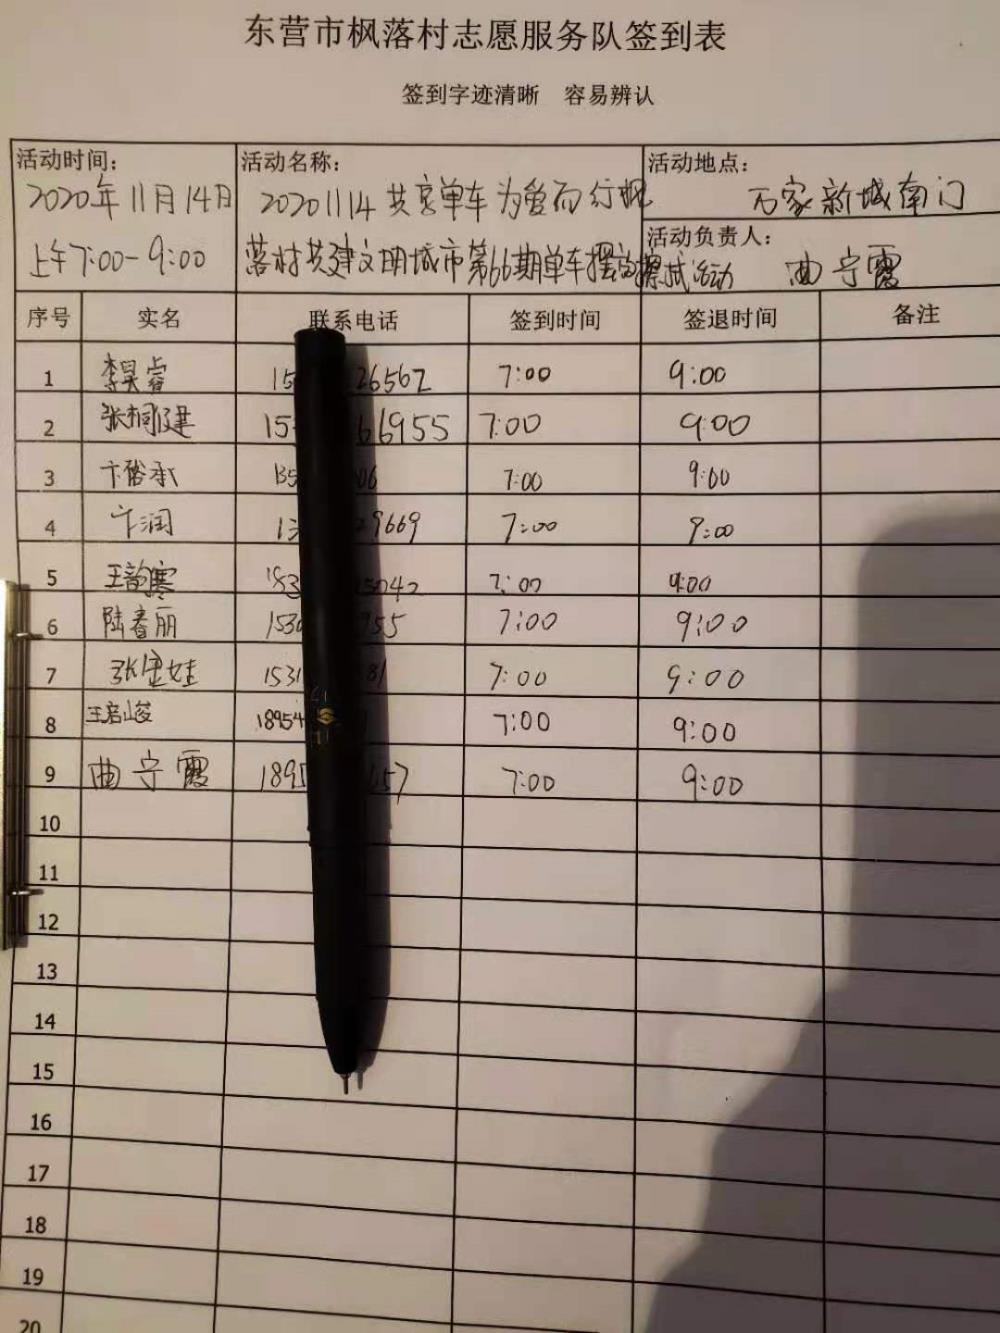 东营市枫落村志愿服务队签到表
签到字迹清晰 容易辨认
活动时间：
2020年11月14日
上午7:00-9:00
活动名称：
20201114共享单车为爱而行枫
落村共建文明城市第66期单车摆放擦拭活动
活动地点：
万家新城南门
活动负责人：
曲宁霞
序号 实名 联系电话 签到时间 签退时间 备注
1 李昊睿 15 26562 7:00 9:00
2 张桐建 15 66955 7:00 9:00
3 卞裕承 135 06 7:00 9:00
4 卞润 13 29669 7:00 9:00
5 王韵寒 153 15042 7:00 9:00
6 陆春丽 1530 755 7:00 9:00
7 张金娃 1531 81 7:00 9:00
8 王启峻 18954 7:00 9:00
9 曲宁霞 1895 57 7:00 9:00
10
11
12
13
14
15
16
17
18
19
20